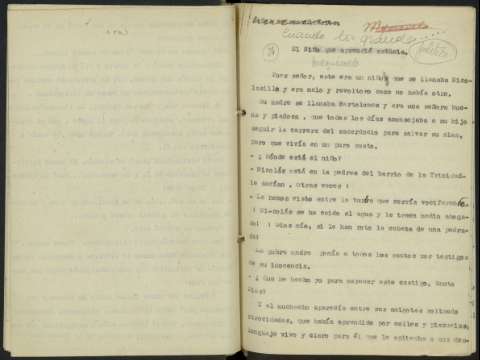 Cuando los grandes......
El Niño que aprendió
Pues señor, este era un niño que se llamaba Nico-
lasillo y era malo y revoltoso como no había otro.
Su madre se llamaba Bartolomea y era una señora bue-
na y piadosa, que todos los días aconsejaba a su hijo
seguir la carrera del sacerdocio para salvar su alma,
pero que vivía en un puro susto.
- ¿ Dónde está el niño?
- Nicolás está en la pedrea del barrio de la Trinidad-
le decían, otras veces :
- Le hemos visto entre la turba que corría vociferando.
¡ Nicolás se ha caído al agua y le temen medio ahoga-
do! ¡ Dios mío, si le han roto la cabeza de una pedra-
da!
La pobre madre ponía a todos los santos por testigos
de su inocencia.
- ¿ Que he hecho yo para merecer este castigo, Santo
Dios?
Y el muchacho aparecía entre sus amigotes soltando
atrocidades, que había aprendido por calles y plazuelas,
lenguaje vivo y claro para él que le aplicaba a sus